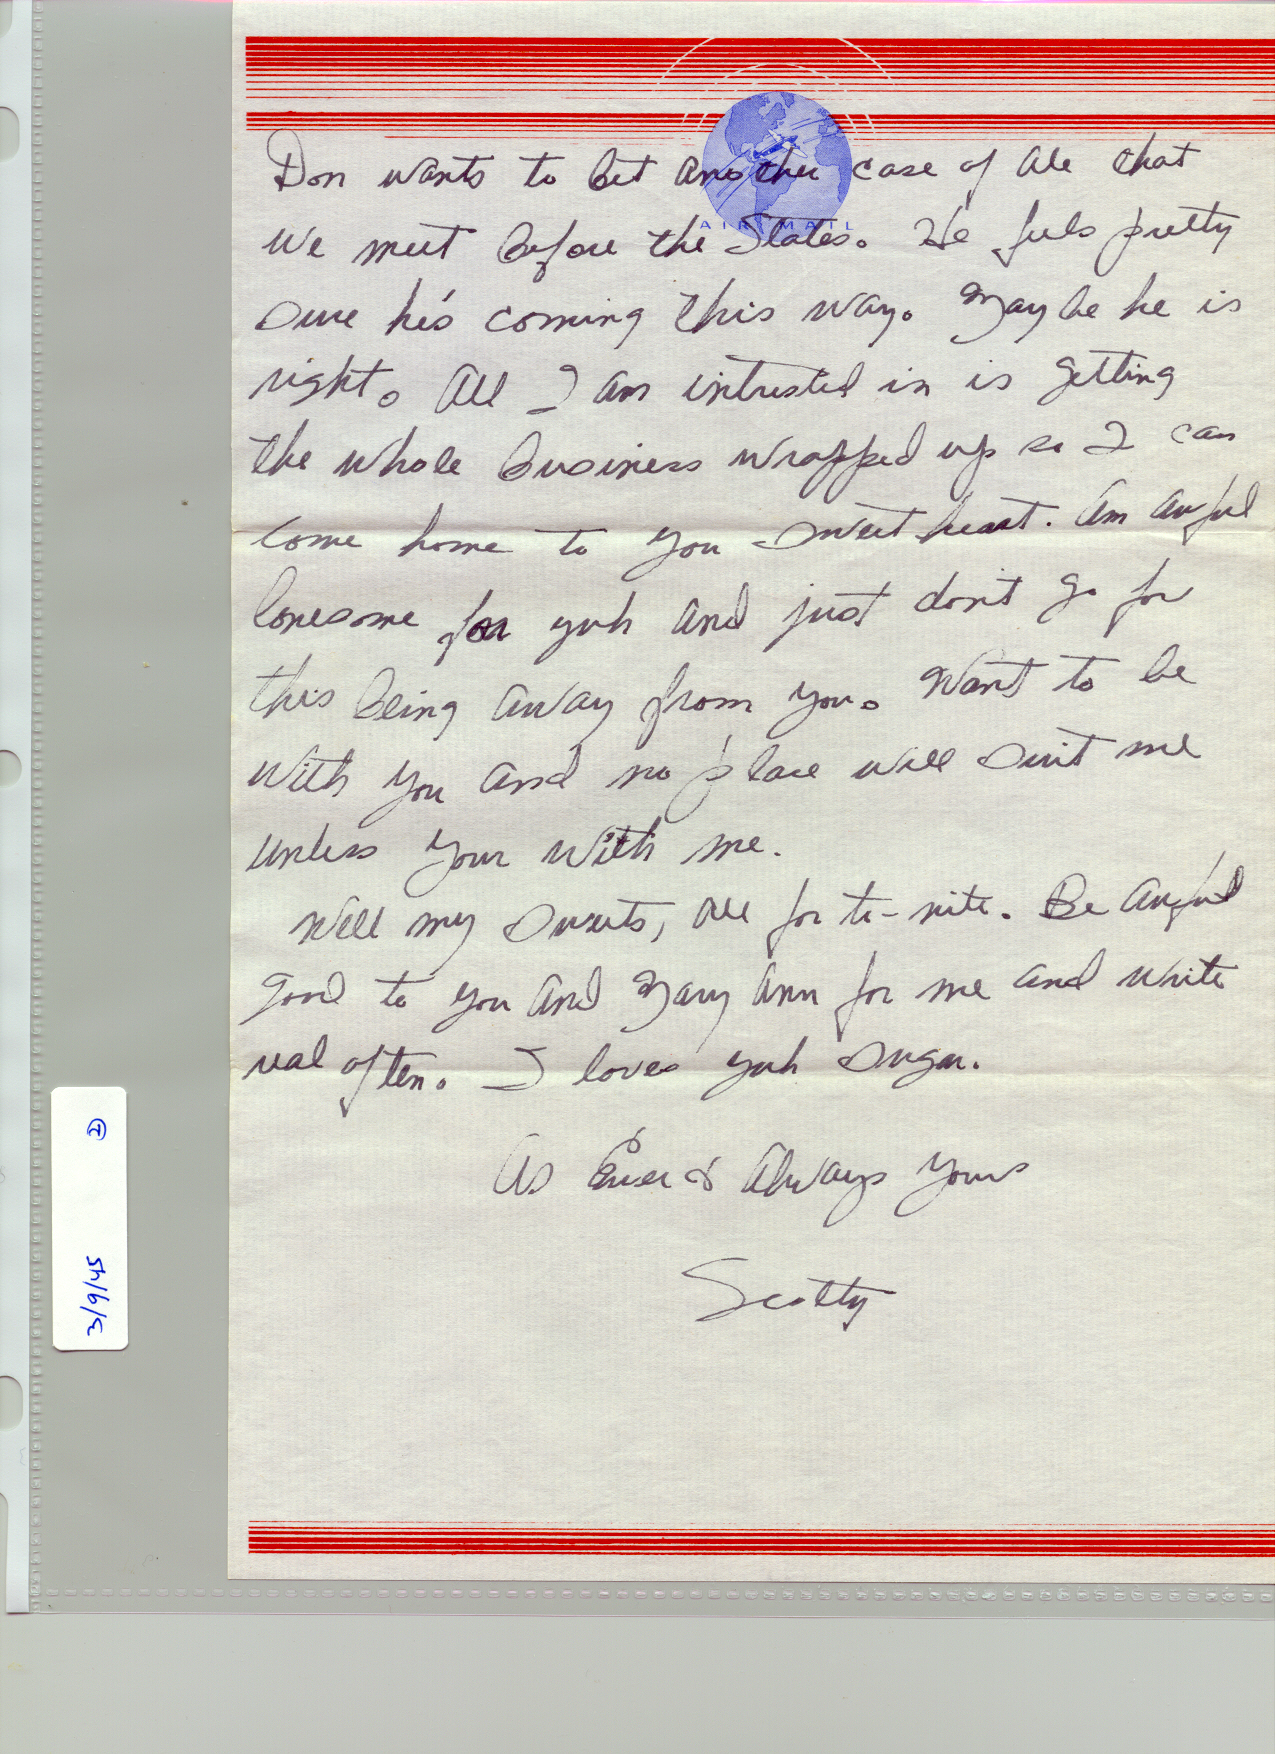 Don wants to bet another case of ale that
AIR MAIL
we meet before the States. He feels pretty
sure he's coming this way. Maybe he is
right. All I am intrested in is getting
the whole business wrapped up so I can
come home to you sweet heart. Am awful
lonesome for yuh and just don't go for
this being away from you. Want to be
with you and no place will suit me
unless your with me.
Well my sweets, all for to-nite. Be awful
good to you and Mary Ann for me and write
real often. I loves yuh sugar.
As Ever & Always Yours
Scotty
3/9/45 2